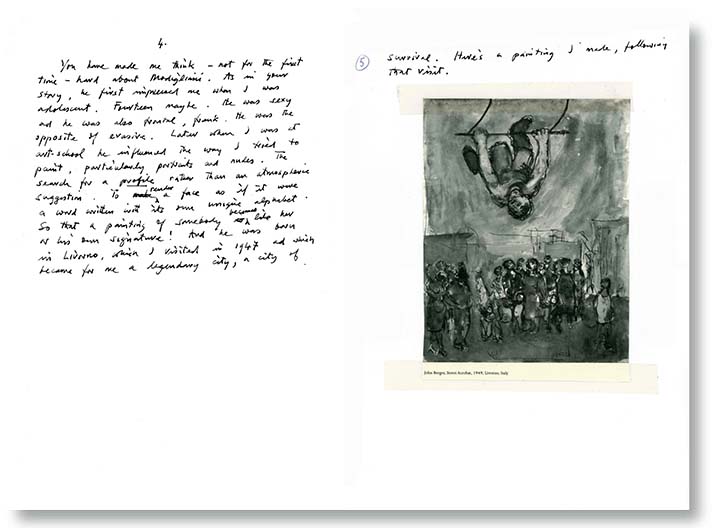 4.
You have made me think – not for the first
time – hard about Modigliani. As in your
story, he first impressed me when I was
adolescent. Fourteen maybe. He was sexy
and he was also frontal, frank. He was the
opposite of evasive. Later when I was at
art-school he influenced the way I tried to
paint, particularly portraits and nudes. The
search for a profile rather than an atmospheric
suggestion. To render a face as if it were
a word written with its own unique alphabet.
So that a painting of somebody becomes like her
or his own signature! And he was born
in Livorno, which I visited in 1947 and which
became for me a legendary city, a city of
5
survival. Here's a painting I made, following
that visit.
John Berger, Street Acrobat, 1949, Livorno, Italy